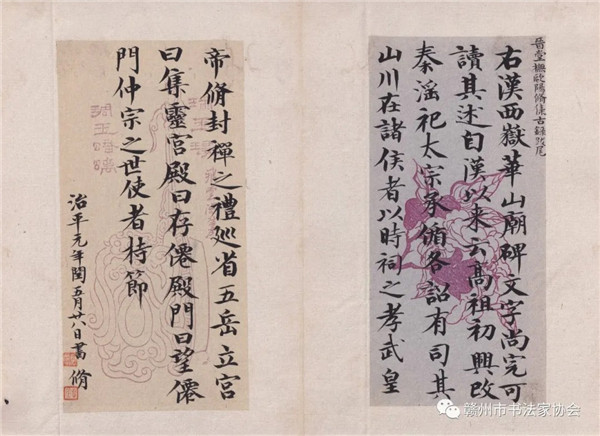 晉堂橅歐陽脩集古錄跋尾
右漢西嶽華山廟碑文字尚完可
讀其述自漢以來云高祖初興改
秦滛祀太宗承循各詔有司其
山川在諸侯者以時祠之孝武皇
帝脩封禪之禮巡省五岳立宮
曰集靈宮殿曰存僊殿門曰望僊
門仲宗之世使者持節
治平元年閏五月廿八日書 脩
赣州市书法家协会